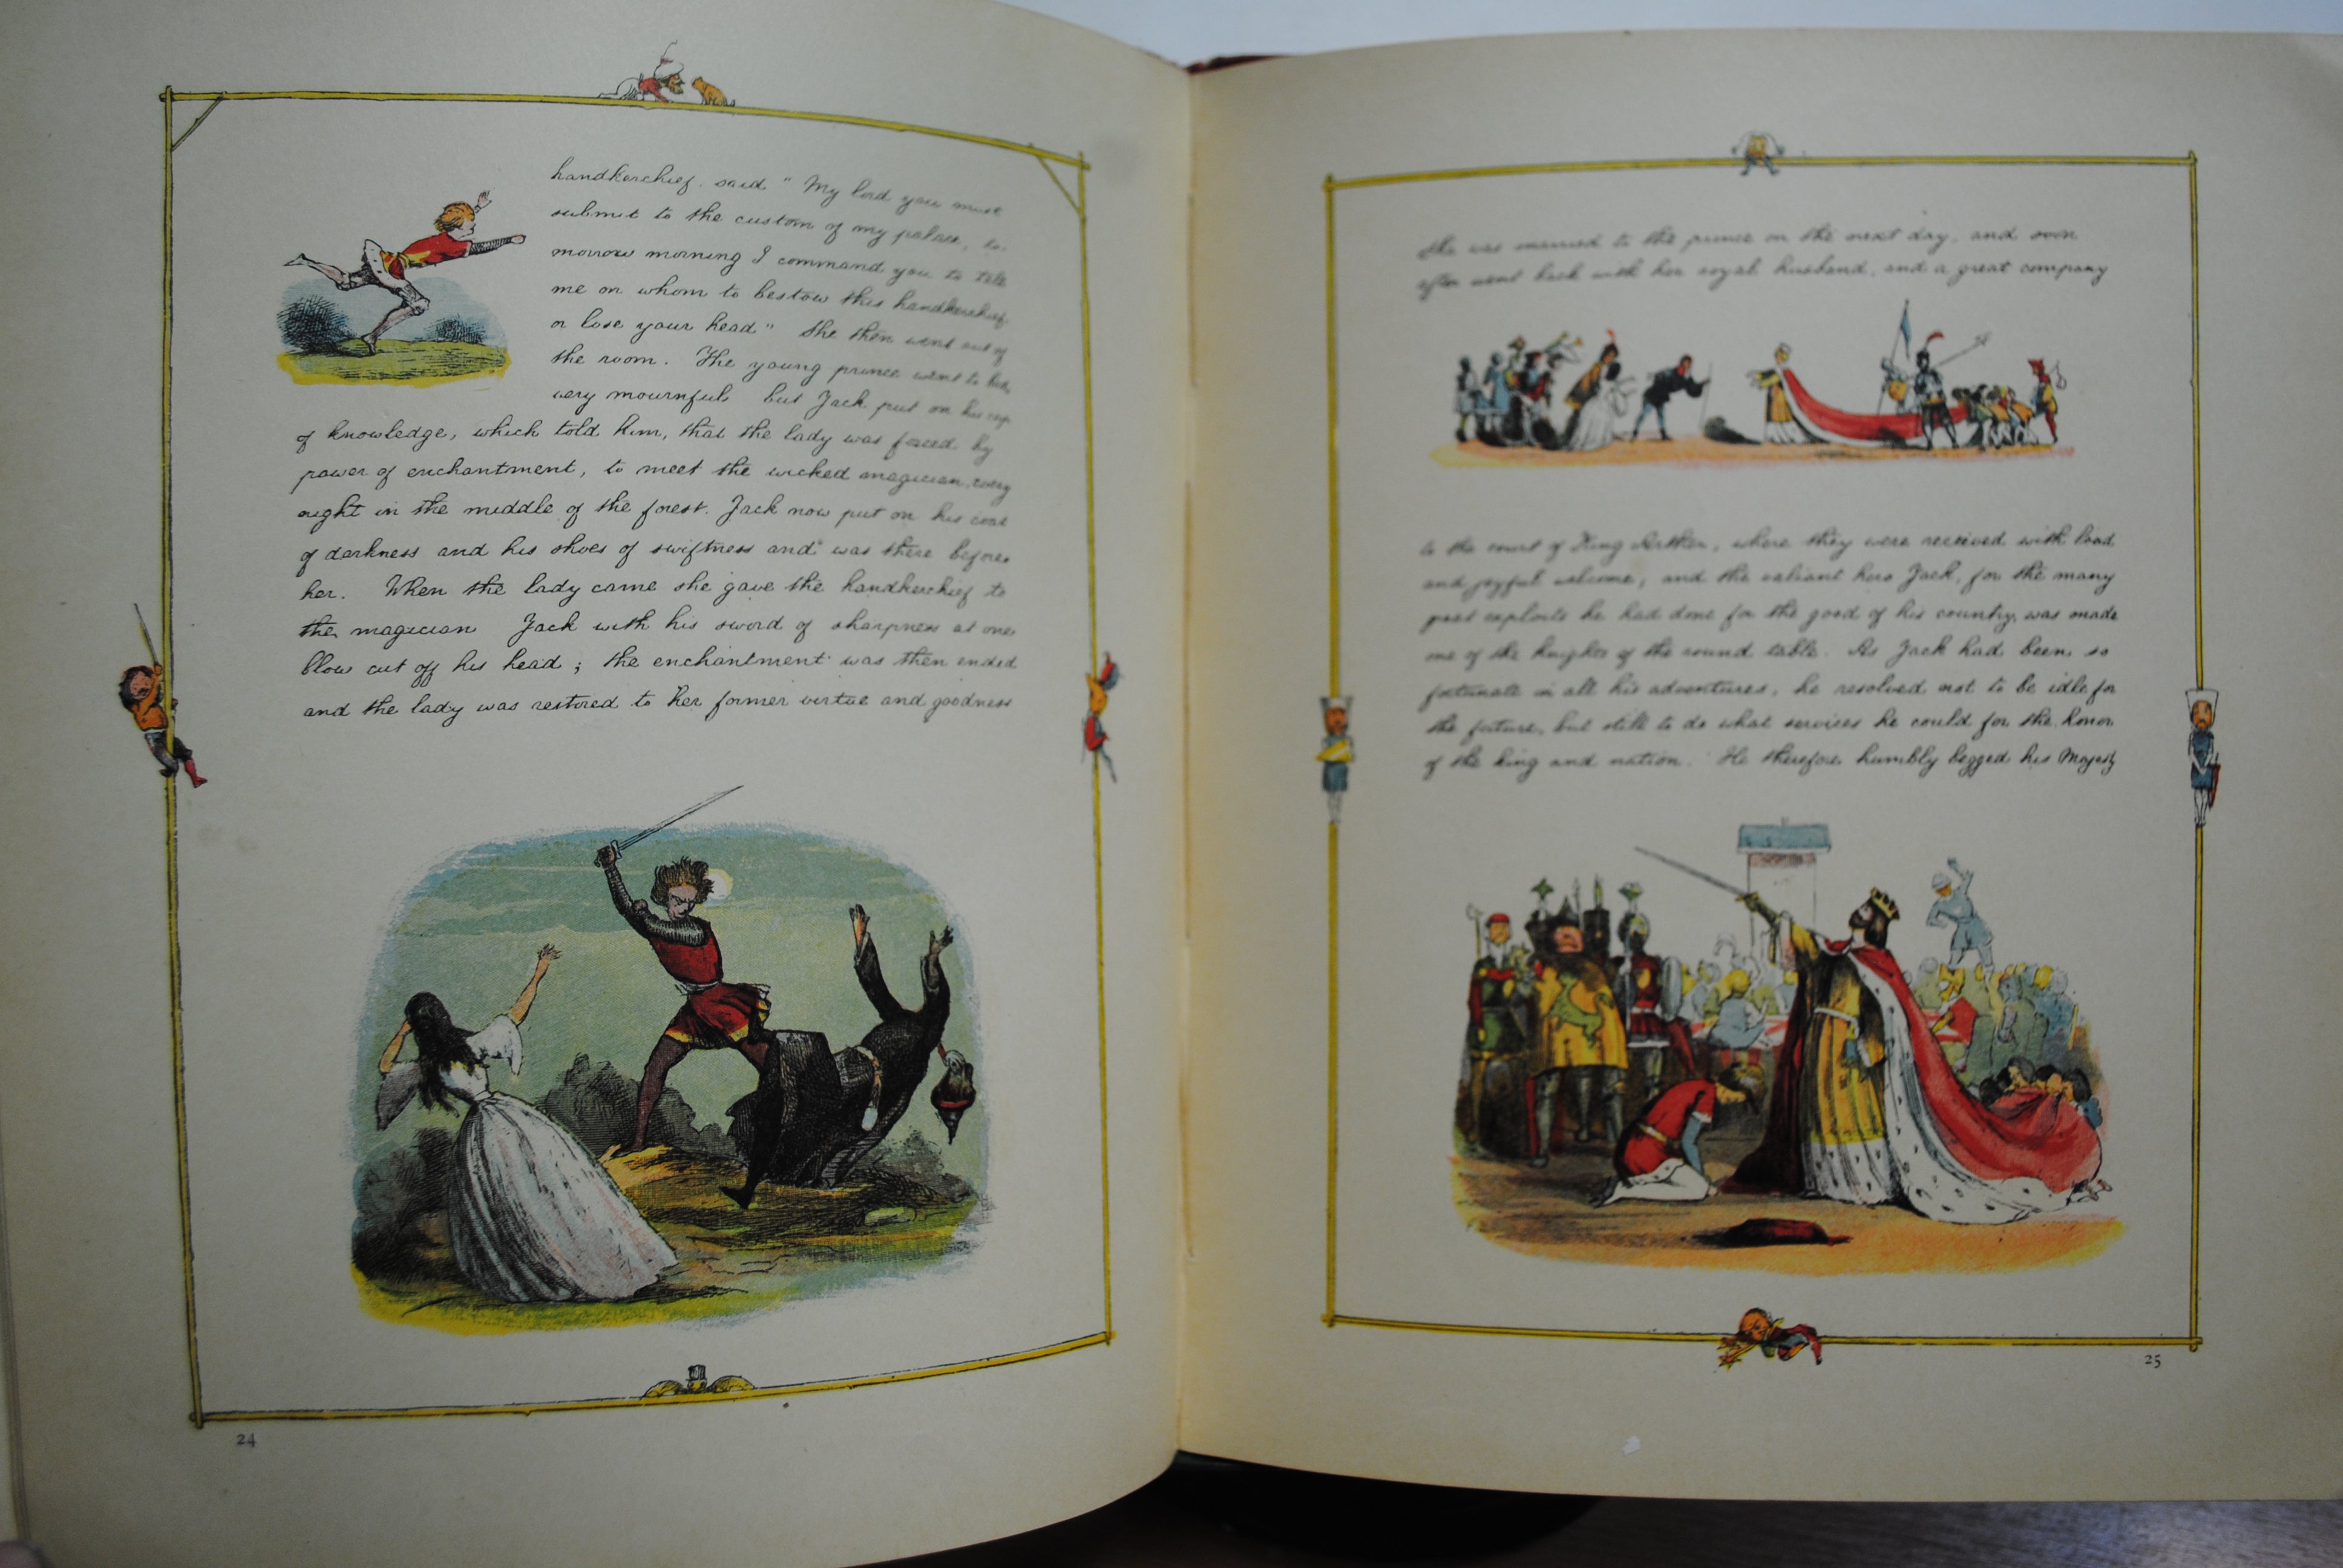 handkerchief, said "My lord you must
submit to the custom of my palace, to
morrow morning I command you to tell
me on whom to bestow this handkerchief
or lose your head" She then went out of
the room. The young prince went to bed,
very mournful but Jack put on his cap
of knowledge, which told him, that the lady was forced by
power of enchantment, to meet the wicked magician, every
night in the middle of the forest. Jack now put on his coat
of darkness and his shoes of swiftness and was there before
her. When the lady came she gave the handkerchief to
the magician Jack with his sword of sharpness at one
blow cut off his head; the enchantment was then ended
and the lady was restored to her former virtue and goodness
24
She was married to the prince on the next day, and soon
after went back with her royal husband, and a great company
to the court of King Arthur, where they were received with loud
and joyful welcome, and the valiant hero Jack, for the many
great exploits he had done for the good of his country, was made
one of the knights of the round table. As Jack had been so
fortunate in all his adventures, he resolved not to be idle for
the future, but still to do what services he could for the honor
of the king and nation. He therefore humbly begged his Majesty
25